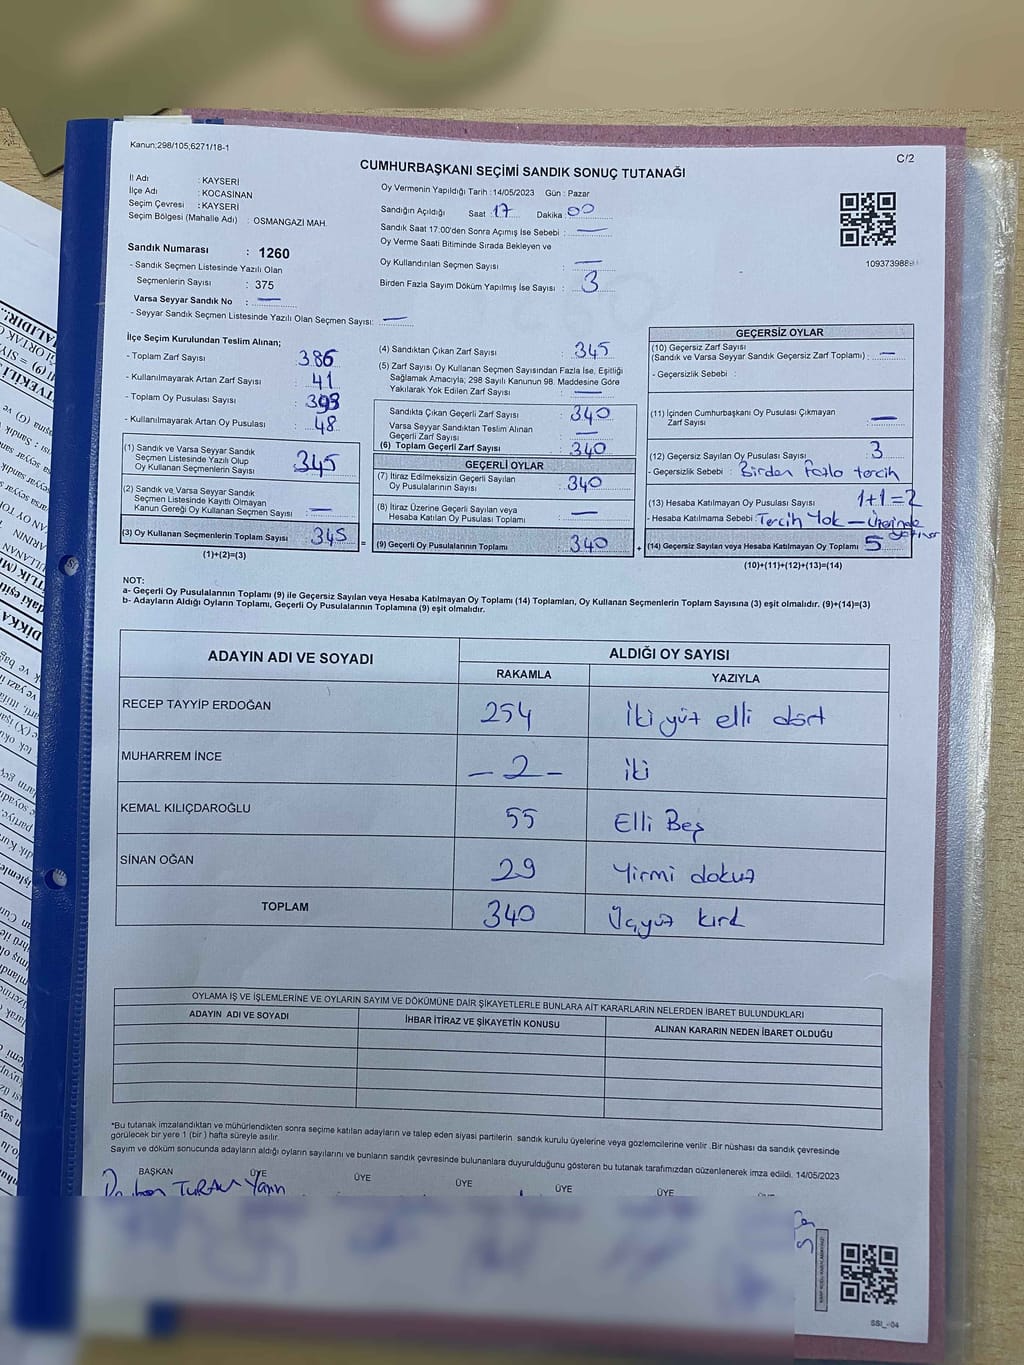 Kanun;298/105;6271/18-1
C/2
CUMHURBAŞKANI SEÇİMİ SANDIK SONUÇ TUTANAĞI
İl Adı : KAYSERİ
İlçe Adı : KOCASİNAN
Seçim Çevresi : KAYSERİ
Seçim Bölgesi (Mahalle Adı) : OSMANGAZİ MAH.
Sandık Numarası : 1260
- Sandık Seçmen Listesinde Yazılı Olan
Seçmenlerin Sayısı : 375
Varsa Seyyar Sandık No : —
- Seyyar Sandık Seçmen Listesinde Yazılı Olan Seçmen Sayısı: —
Oy Vermenin Yapıldığı Tarih : 14/05/2023 Gün : Pazar
Sandığın Açıldığı Saat 17 Dakika 00
Sandık Saat 17:00'den Sonra Açımış İse Sebebi : —
Oy Verme Saati Bitiminde Sırada Bekleyen ve
Oy Kullandırılan Seçmen Sayısı : —
Birden Fazla Sayım Döküm Yapılmış İse Sayısı : 3
İlçe Seçim Kurulundan Teslim Alınan;
- Toplam Zarf Sayısı : 386
- Kullanılmayarak Artan Zarf Sayısı : 41
- Toplam Oy Pusulası Sayısı : 393
- Kullanılmayarak Artan Oy Pusulası : 48
(1) Sandık ve Varsa Seyyar Sandık
Seçmen Listesinde Yazılı Olup
Oy Kullanan Seçmenlerin Sayısı : 345
(2) Sandık ve Varsa Seyyar Sandık
Seçmen Listesinde Kayıtlı Olmayan
Kanun Gereği Oy Kullanan Seçmen Sayısı : —
(3) Oy Kullanan Seçmenlerin Toplam Sayısı : 345
(1)+(2)=(3)
(4) Sandıktan Çıkan Zarf Sayısı : 345
(5) Zarf Sayısı Oy Kullanan Seçmen Sayısından Fazla İse, Eşitliği
Sağlamak Amacıyla; 298 Sayılı Kanunun 98. Maddesine Göre
Yakılarak Yok Edilen Zarf Sayısı : —
Sandıkta Çıkan Geçerli Zarf Sayısı : 340
Varsa Seyyar Sandıktan Teslim Alınan
Geçerli Zarf Sayısı : —
(6) Toplam Geçerli Zarf Sayısı : 340
GEÇERLİ OYLAR
(7) İtiraz Edilmeksizin Geçerli Sayılan
Oy Pusulalarının Sayısı : 340
(8) İtiraz Üzerine Geçerli Sayılan veya
Hesaba Katılan Oy Pusulası Toplamı : —
= (9) Geçerli Oy Pusulalarının Toplamı : 340
GEÇERSİZ OYLAR
(10) Geçersiz Zarf Sayısı
(Sandık ve Varsa Seyyar Sandık Geçersiz Zarf Toplamı) : —
- Geçersizlik Sebebi :
(11) İçinden Cumhurbaşkanı Oy Pusulası Çıkmayan
Zarf Sayısı : —
(12) Geçersiz Sayılan Oy Pusulası Sayısı : 3
- Geçersizlik Sebebi : Birden Fazla tercih
(13) Hesaba Katılmayan Oy Pusulası Sayısı : 1+1=2
- Hesaba Katılmama Sebebi : Tercih Yok — Üzerinde
+ (14) Geçersiz Sayılan veya Hesaba Katılmayan Oy Toplamı : 5
(10)+(11)+(12)+(13)=(14)
NOT:
a- Geçerli Oy Pusulalarının Toplamı (9) ile Geçersiz Sayılan veya Hesaba Katılmayan Oy Toplamı (14) Toplamları, Oy Kullanan Seçmenlerin Toplam Sayısına (3) eşit olmalıdır. (9)+(14)=(3)
b- Adayların Aldığı Oyların Toplamı, Geçerli Oy Pusulalarının Toplamına (9) eşit olmalıdır.
ADAYIN ADI VE SOYADI ALDIĞI OY SAYISI
RAKAMLA YAZIYLA
RECEP TAYYİP ERDOĞAN 254 İki yüz elli dört
MUHARREM İNCE – 2 – iki
KEMAL KILIÇDAROĞLU 55 Elli Beş
SİNAN OĞAN 29 Yirmi dokuz
TOPLAM 340 Üçyüz kırk
OYLAMA İŞ VE İŞLEMLERİNE VE OYLARIN SAYIM VE DÖKÜMÜNE DAİR ŞİKAYETLERLE BUNLARA AİT KARARLARIN NELERDEN İBARET BULUNDUKLARI
ADAYIN ADI VE SOYADI İHBAR İTİRAZ VE ŞİKAYETİN KONUSU ALINAN KARARIN NEDEN İBARET OLDUĞU
*Bu tutanak imzalandıktan ve mühürlendikten sonra seçime katılan adayların ve talep eden siyasi partilerin sandık kurulu üyelerine veya gözlemcilerine verilir .Bir nüshası da sandık çevresinde
görülecek bir yere 1 (bir ) hafta süreyle asılır.
Sayım ve döküm sonucunda adayların aldığı oyların sayılarını ve bunların sandık çevresinde bulunanlara duyurulduğunu gösteren bu tutanak tarafımızdan düzenlenerek imza edildi. 14/05/2023
BAŞKAN ÜYE ÜYE ÜYE ÜYE ÜYE
TURAN